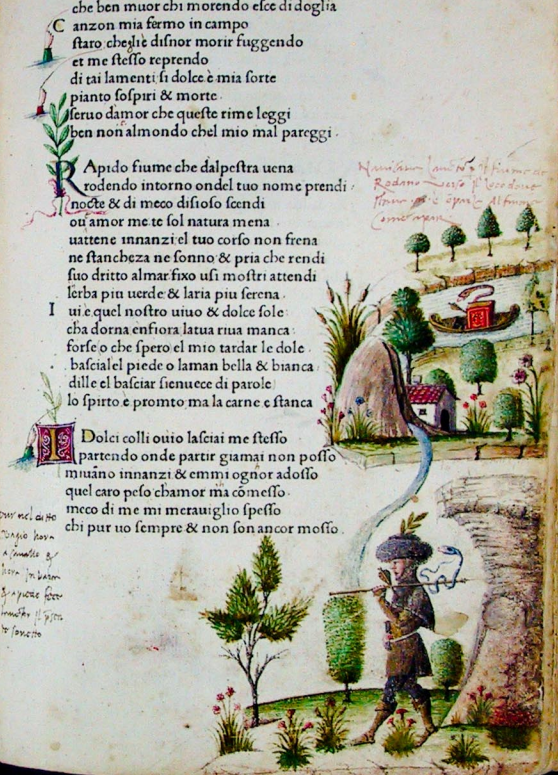 che ben muor chi morendo esce di doglia
C anzon mia fermo in campo
staro cheglie disnor morir fuggendo
et me stesso reprendo
di tai lamenti si dolce è mia sorte
pianto sospiri & morte.
seruo damor che queste rime leggi
ben non almondo chel mio mal pareggi.
R Apido fiume che dalpestra uena
rodendo intorno ondel tuo nome prendi
nocte & di meco disioso scendi
ou amor me te sol natura mena
uattene innanzi el tuo corso non frena
ne stancheza ne sonno & pria che rendi
suo dritto almar fixo usi mostri attendi
lerba piu uerde & laria piu serena.
I ui e quel nostro uiuo & dolce sole
cha dorna enfiora latua riua manca
forse o che spero el mio tardar le dole.
basciale el piede o laman bella & bianca
dille el basciar sienuece di parole
lo spirto e promto ma la carne e stanca
I Dolci colli ouio lasciai me stesso
partendo onde partir giamai non posso
miuāno innanzi & emmi ognor adosso
quel caro peso chamor ma cōmesso.
meco di me mi merauiglio spesso
chi pur uo sempre & non son ancor mosso.
Rodano